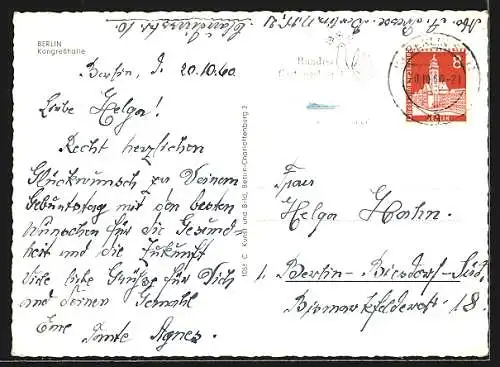 BERLIN
Kongreßhalle
Berlin, d. 20.10.60
Liebe Helga!
Recht herzlichen
Glückwunsch zu Deinem
Geburtstag mit den besten
Wünschen für die Gesund=
heit und die Zukunft
viele liebe Grüße für Dich
und Deinen Gemahl
Tante Agnes.
1051 C Kunst und Bild, Berlin-Charlottenburg 2
8
Frau
Helga Hahn.
1. Berlin-Biesdorf-Süd,
18.